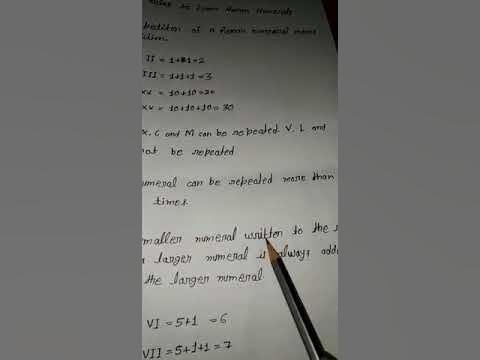 Rules to form Roman Numerals
of a Roman numeral means
II = 1+1=2
III = 1+1+1=3
XX = 10+10=20
XX = 10+10+10=30
X, C and M can be repeated V, L and
not be repeated
numeral can be repeated more than
times
smaller numeral written to the
larger numeral is always
the larger numeral
VI = 5+1 = 6
VII = 5+1+1=7